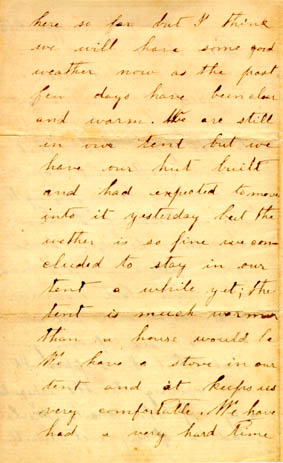 here so far but I think
we will have some good
weather now as the past
few days have been clear
and warm. We are still
in owr tent but we
have our hut built
and had expected to move
into it yesterday but the
wether is so fine we con
cluded to stay in our
tent a while yet; the
tent is much warmer
than a house would be
We have a stove in our
tent and it keeps us
very comfortable. We have
had a very hard time